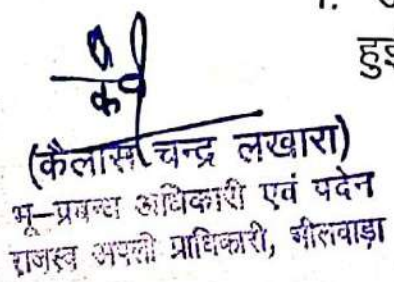 हुई
(कैलास चन्द्र लखारा)
भू-प्रबन्ध अधिकारी एवं पदेन
राजस्व अपली प्राधिकारी, भीलवाड़ा